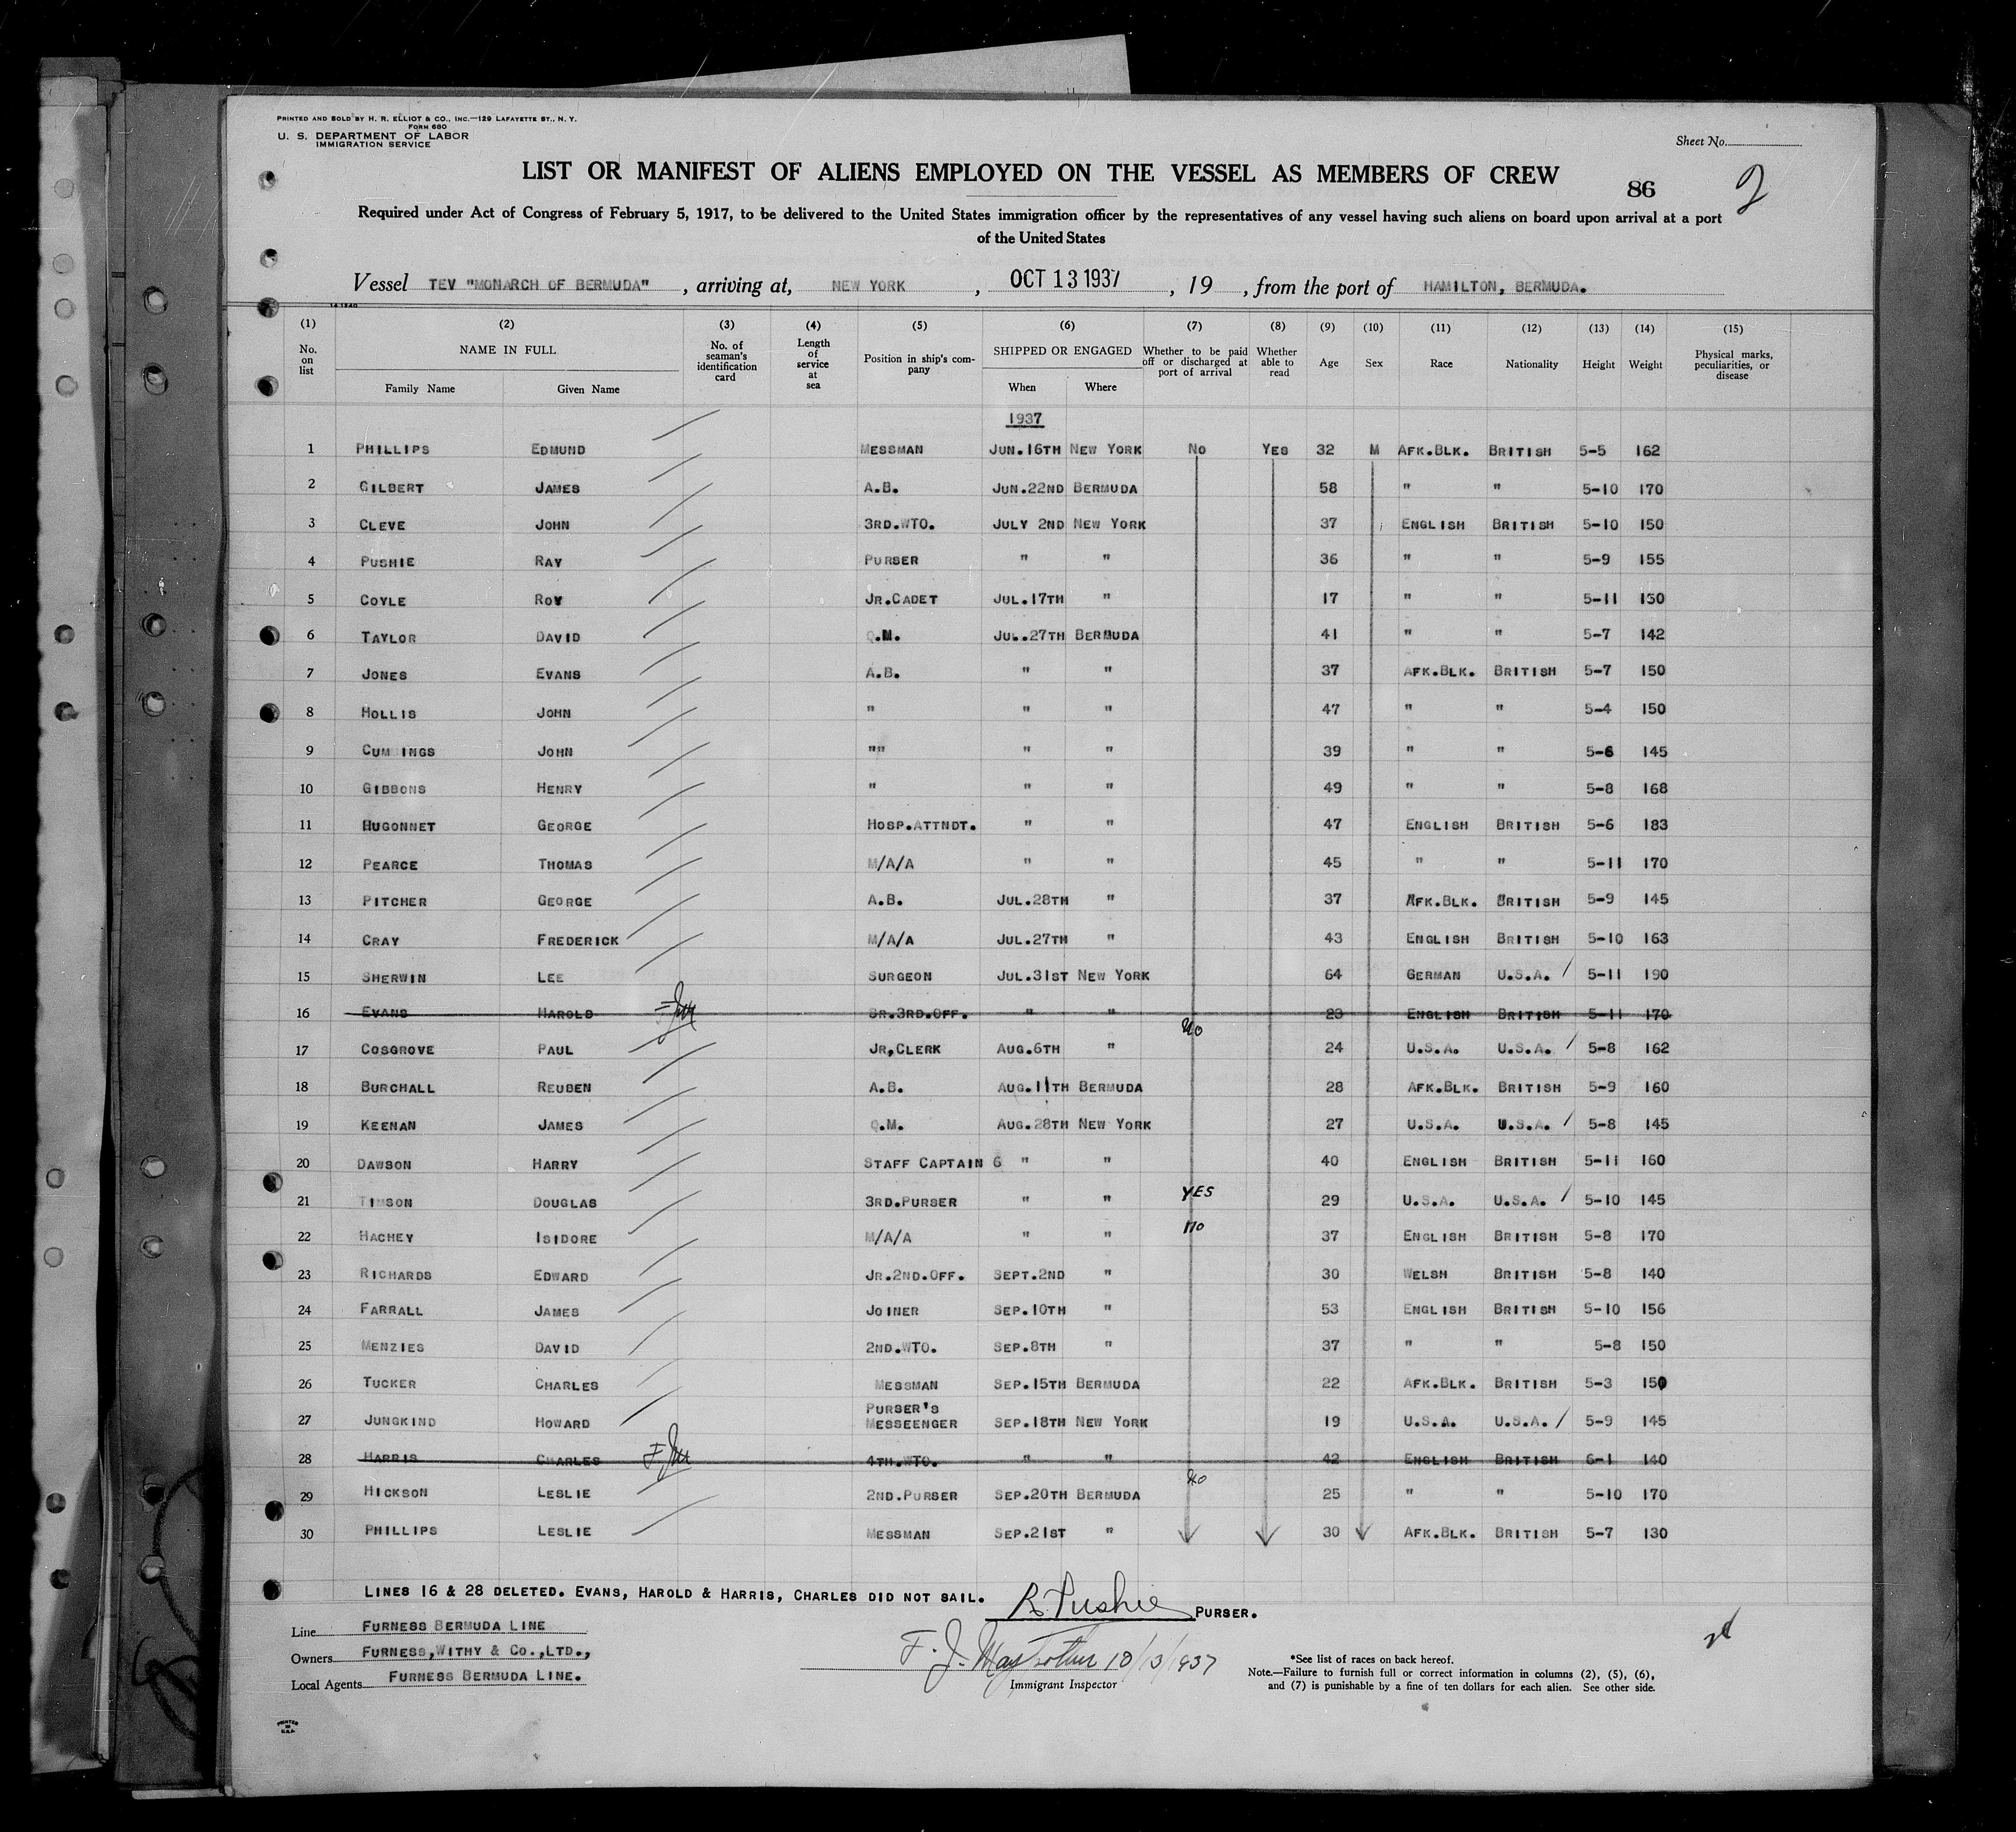 PRINTED AND SOLD BY H. R. ELLIOT & CO., INC.—129 LAFAYETTE ST., N. Y.
FORM 680
U. S. DEPARTMENT OF LABOR
IMMIGRATION SERVICE
Sheet No.
LIST OR MANIFEST OF ALIENS EMPLOYED ON THE VESSEL AS MEMBERS OF CREW
86 2
Required under Act of Congress of February 5, 1917, to be delivered to the United States immigration officer by the representatives of any vessel having such aliens on board upon arrival at a port
of the United States
Vessel TEV "MONARCH OF BERMUDA", arriving at, NEW YORK, OCT 13 1937, 19 , from the port of HAMILTON, BERMUDA.
(1) (2) (3) (4) (5) (6) (7) (8) (9) (10) (11) (12) (13) (14) (15)
No. on list NAME IN FULL Family Name Given Name No. of seaman's identification card Length of service at sea Position in ship's company SHIPPED OR ENGAGED When Where Whether to be paid off or discharged at port of arrival Whether able to read Age Sex Race Nationality Height Weight Physical marks, peculiarities, or disease
1937
1 PHILLIPS EDMUND MESSMAN JUN.16TH NEW YORK NO YES 32 M AFK.BLK. BRITISH 5-5 162
2 GILBERT JAMES A.B. JUN.22ND BERMUDA 58 " " 5-10 170
3 CLEVE JOHN 3RD.WTO. JULY 2ND NEW YORK 37 ENGLISH BRITISH 5-10 150
4 PUSHIE RAY PURSER " " 36 " " 5-9 155
5 COYLE ROY JR.CADET JUL.17TH " 17 " " 5-11 150
6 TAYLOR DAVID Q.M. JUL.27TH BERMUDA 41 " " 5-7 142
7 JONES EVANS A.B. " " 37 AFK.BLK. BRITISH 5-7 150
8 HOLLIS JOHN " " " 47 " " 5-4 150
9 CUMMINGS JOHN "" " " 39 " " 5-6 145
10 GIBBONS HENRY " " " 49 " " 5-8 168
11 HUGONNET GEORGE HOSP.ATTNDT. " " 47 ENGLISH BRITISH 5-6 183
12 PEARCE THOMAS M/A/A " " 45 " " 5-11 170
13 PITCHER GEORGE A.B. JUL.28TH " 37 AFK.BLK. BRITISH 5-9 145
14 CRAY FREDERICK M/A/A JUL.27TH " 43 ENGLISH BRITISH 5-10 163
15 SHERWIN LEE SURGEON JUL.31ST NEW YORK 64 GERMAN U.S.A. / 5-11 190
16 EVANS HAROLD FJM SR.3RD.OFF. " " 23 ENGLISH BRITISH 5-11 170
17 COSGROVE PAUL JR,CLERK AUG.6TH " NO 24 U.S.A. U.S.A. / 5-8 162
18 BURCHALL REUBEN A.B. AUG.11TH BERMUDA 28 AFK.BLK. BRITISH 5-9 160
19 KEENAN JAMES Q.M. AUG.28TH NEW YORK 27 U.S.A. U.S.A. / 5-8 145
20 DAWSON HARRY STAFF CAPTAIN 6 " " 40 ENGLISH BRITISH 5-11 160
21 TIMSON DOUGLAS 3RD.PURSER " " YES 29 U.S.A. U.S.A. / 5-10 145
22 HACHEY ISIDORE M/A/A " " NO 37 ENGLISH BRITISH 5-8 170
23 RICHARDS EDWARD JR.2ND.OFF. SEPT.2ND " 30 WELSH BRITISH 5-8 140
24 FARRALL JAMES JOINER SEP.10TH " 53 ENGLISH BRITISH 5-10 156
25 MENZIES DAVID 2ND.WTO. SEP.8TH " 37 " " 5-8 150
26 TUCKER CHARLES MESSMAN SEP.15TH BERMUDA 22 AFK.BLK. BRITISH 5-3 150
27 JUNGKIND HOWARD PURSER'S MESSEENGER SEP.18TH NEW YORK 19 U.S.A. U.S.A. / 5-9 145
28 HARRIS CHARLES FJM 4TH.WTO. " " 42 ENGLISH BRITISH 6-1 140
29 HICKSON LESLIE 2ND.PURSER SEP.20TH BERMUDA NO 25 " " 5-10 170
30 PHILLIPS LESLIE MESSMAN SEP.21ST " 30 AFK.BLK. BRITISH 5-7 130
LINES 16 & 28 DELETED. EVANS, HAROLD & HARRIS, CHARLES DID NOT SAIL. R. Pushie PURSER.
Line FURNESS BERMUDA LINE
Owners FURNESS,WITHY & CO.,LTD.,
Local Agents FURNESS BERMUDA LINE.
F. J. 10/13/1937
Immigrant Inspector
*See list of races on back hereof.
Note.—Failure to furnish full or correct information in columns (2), (5), (6),
and (7) is punishable by a fine of ten dollars for each alien. See other side.
PRINTED IN U.S.A.